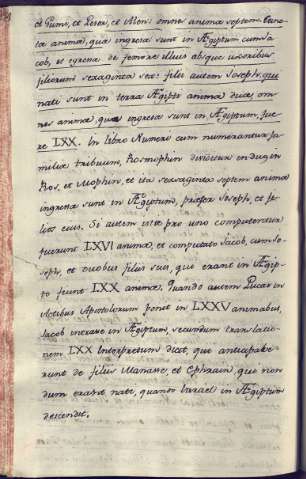 et Guni, et Jeser, et Alem: omnes animæ septem. Cunc-
tæ animæ, quæ ingresæ sunt in Ægiptum cum Ja-
cob, et egresæ de femore illius absque uxoribus
filiorum sexaginta sex: filii autem Joseph, qui
nati sunt in terra Ægipti animæ duæ, om-
nes animæ, quæ ingresæ sunt in Ægiptum, fue-
re LXX. In libro Numeri cum numerantur fa-
miliæ tribuum, Rosmophim dividitur in duo, in
Ros, et Mophim, et ita sexaginta septem animæ
ingresæ sunt in Ægiptum, præter Joseph, et fi-
lios eius. Si autem isti pro uno computentur
fuerunt LXVI animæ, et computato Jacob, cum Jo-
seph, et duobus filiis suis, qui erant in Ægip-
to fiunt LXX animæ. Quando autem Lucas in
Actibus Apostolorum ponit in LXXV animabus,
Jacob intrasse in Ægiptum, secundum translatio-
nem LXX Interpretum dicit, qui anticipave-
runt de filiis Manase, et Ephraim, qui non-
dum erant nati, quando Israel in Ægiptum
descendit.